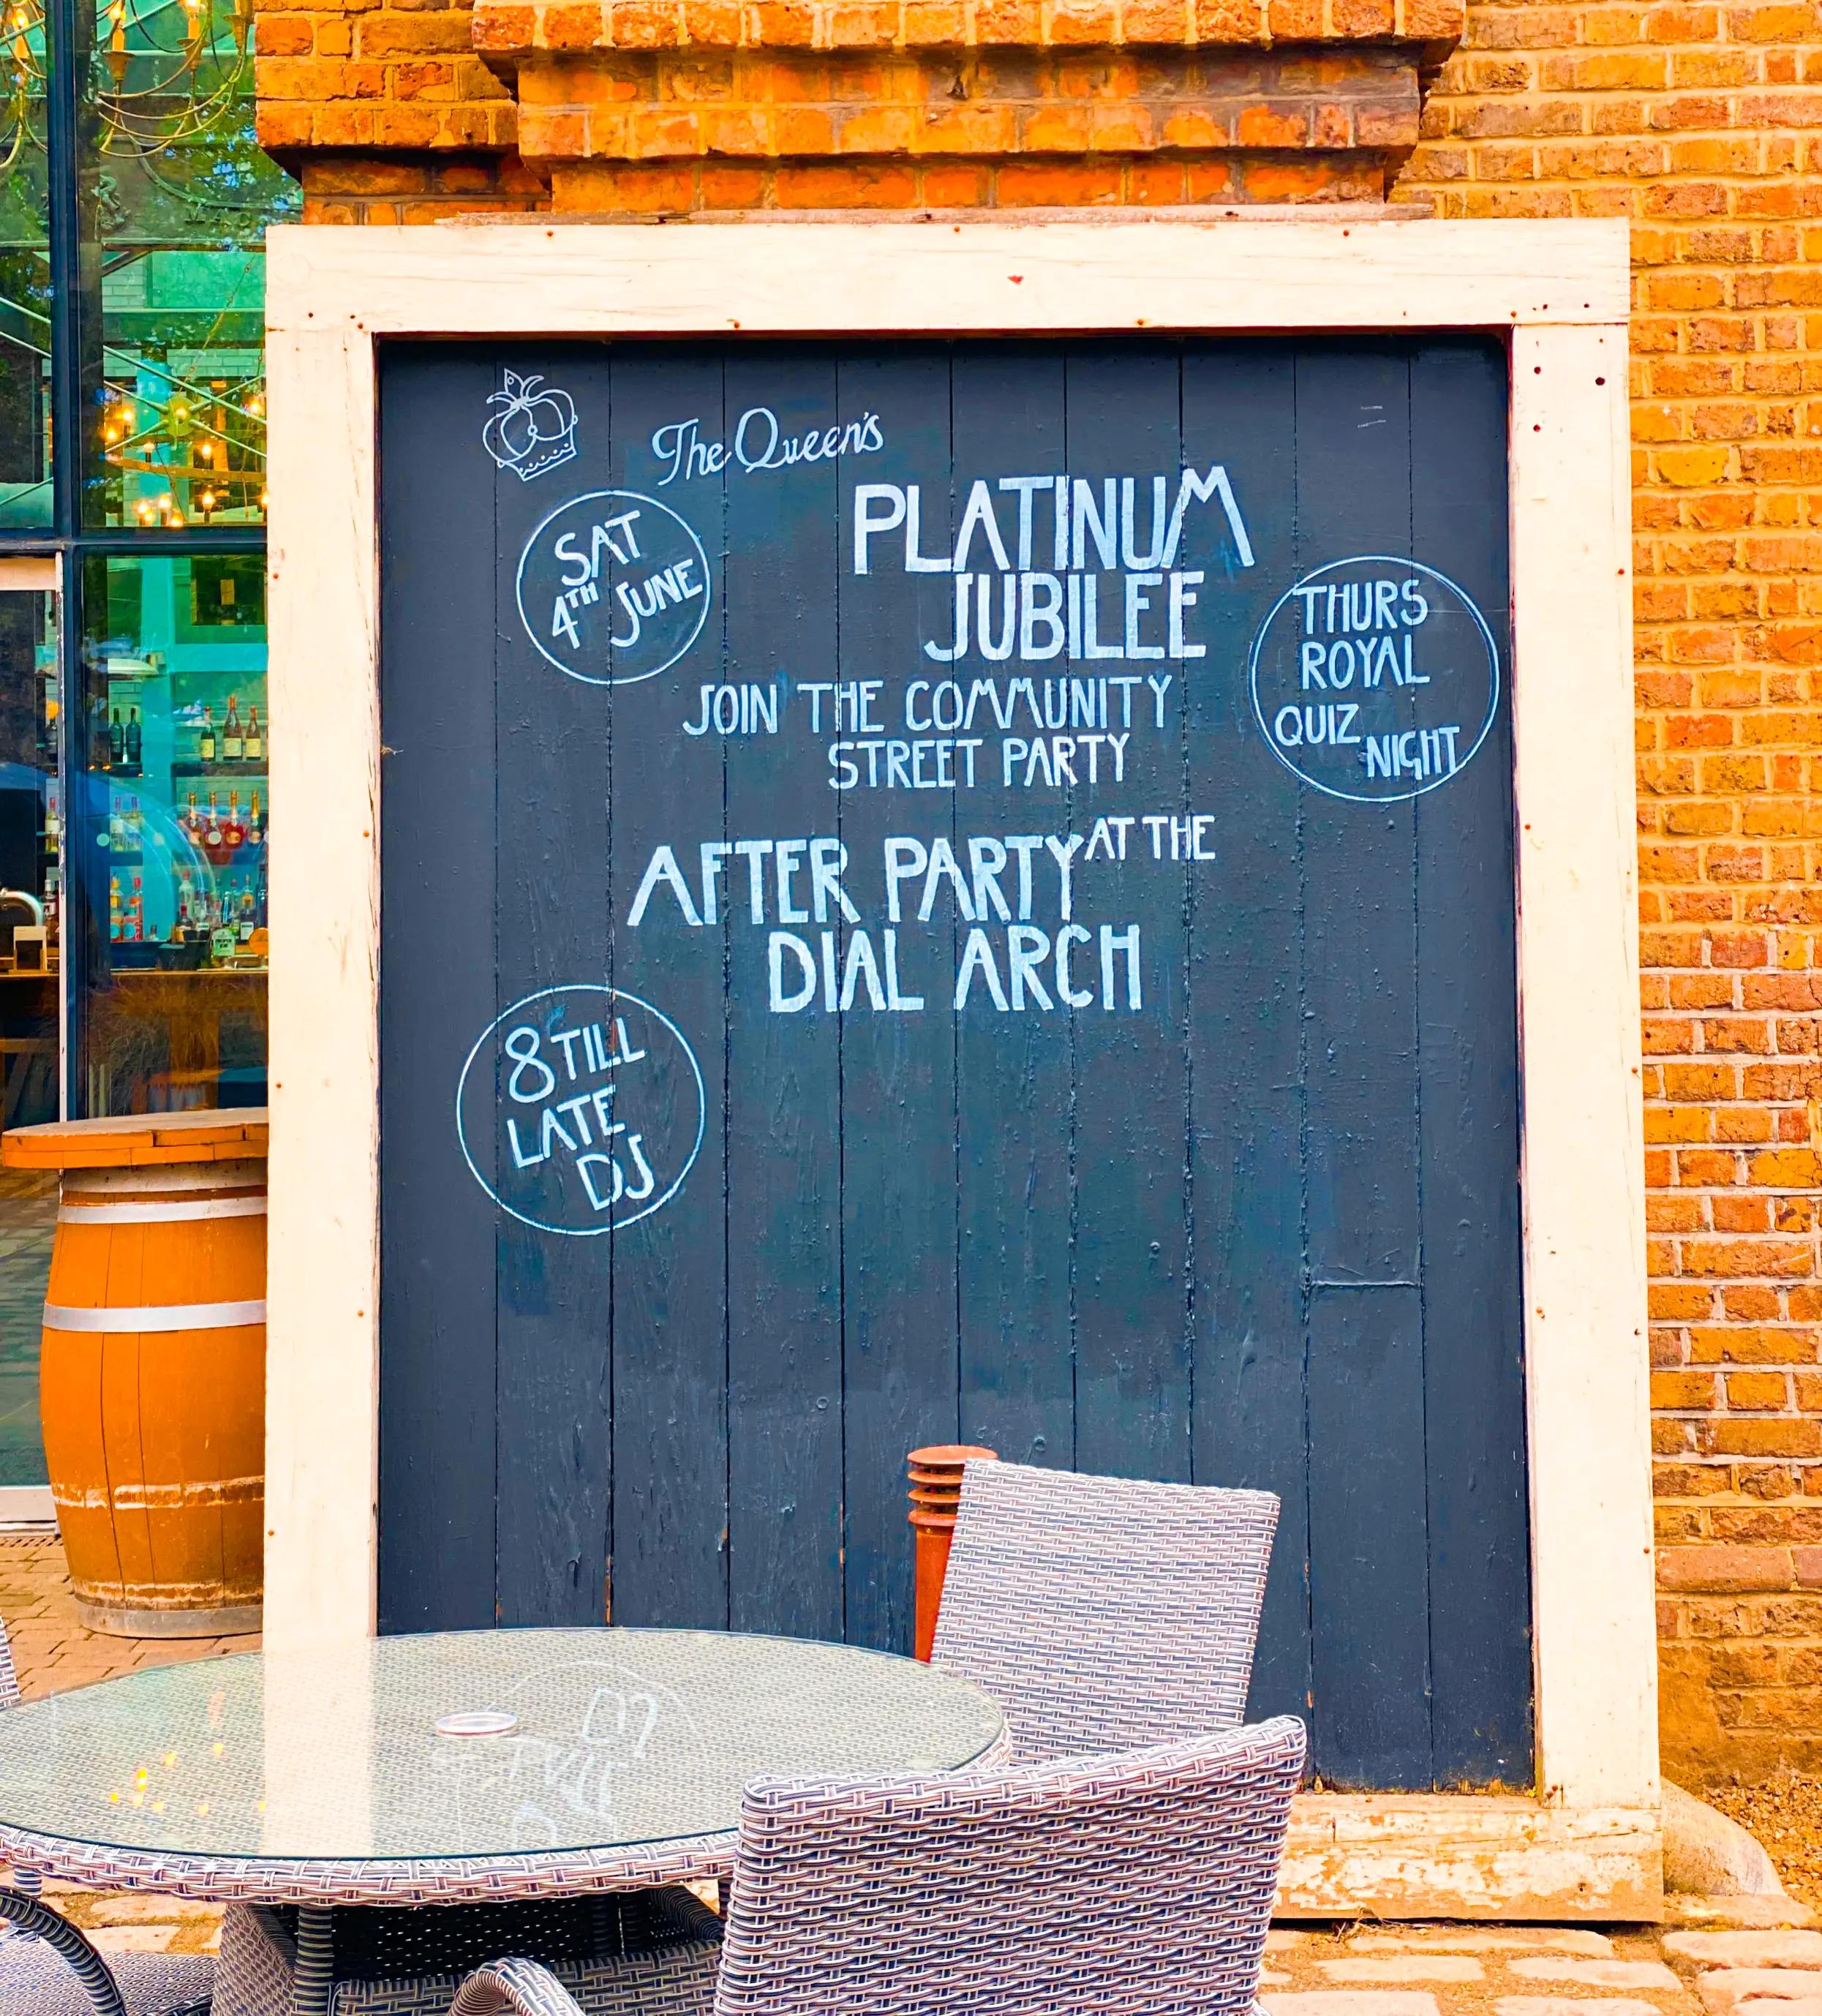 The Queen's
PLATINUM
JUBILEE
SAT
4TH JUNE
THURS
ROYAL
QUIZ
NIGHT
JOIN THE COMMUNITY
STREET PARTY
AFTER PARTY AT THE
DIAL ARCH
8 TILL
LATE
DJ